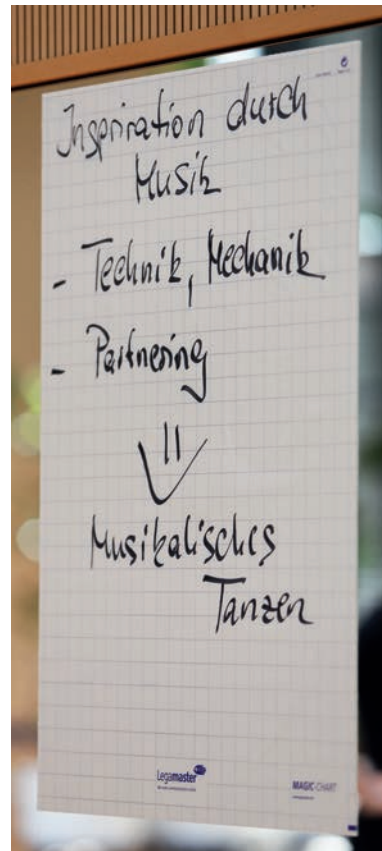 Inspiration durch
Musik
- Technik, Mechanik
- Partnering
Musikalisches
Tanzen
Legamaster
MAGIC-CHART